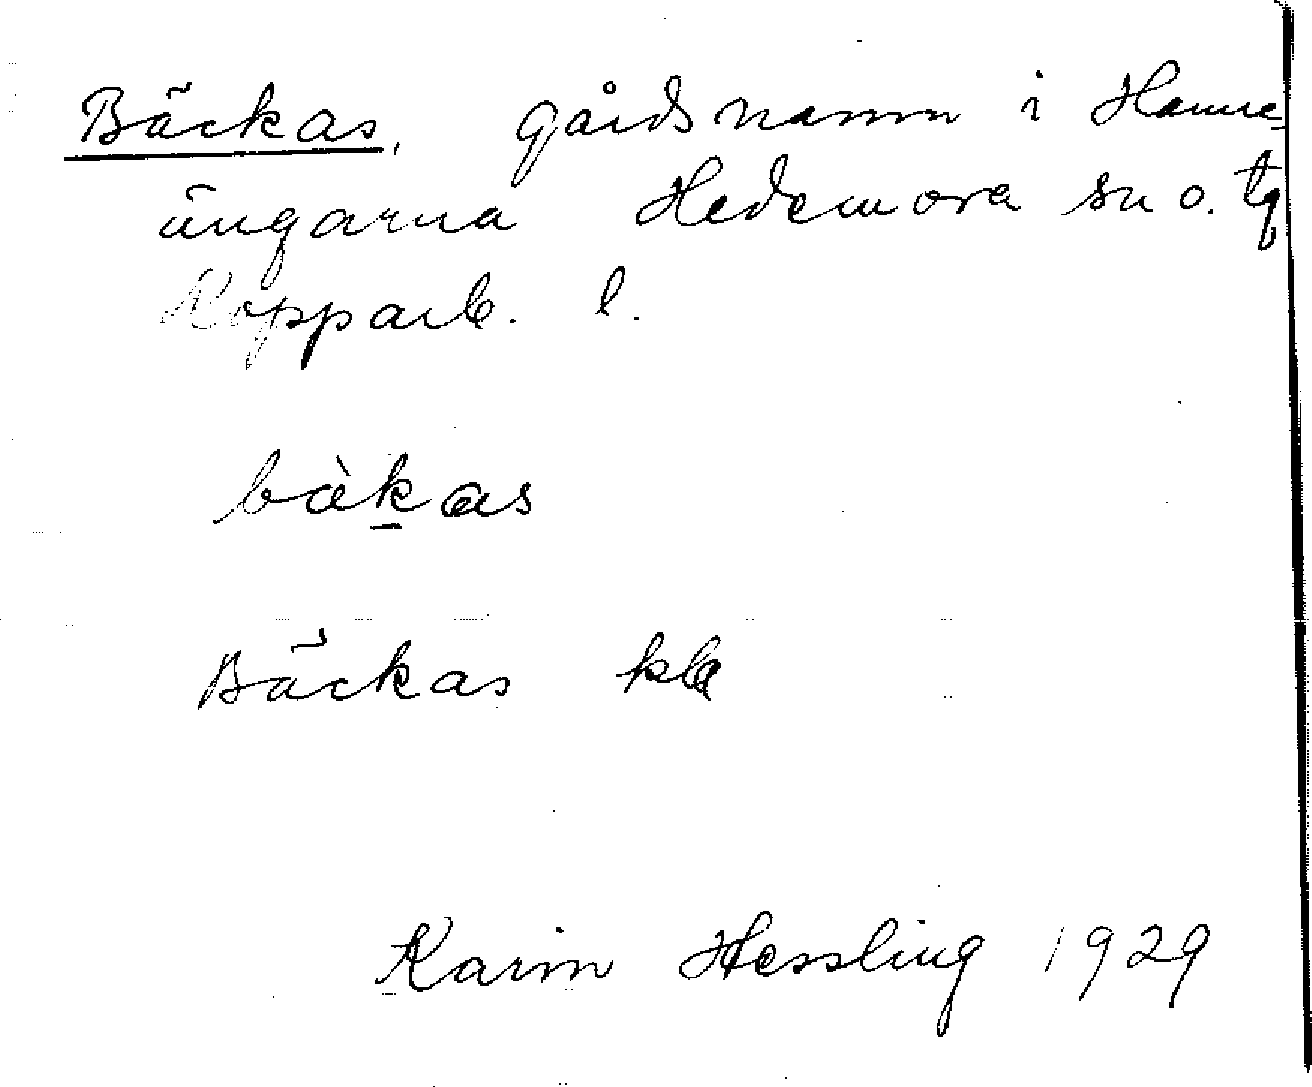 Bäckas, gårdsnamn i Hamre-
ängarna Hedemora sn o. tg
Kopparb. l.
bàkas
Bäckas kbl
Karin Hessling 1929